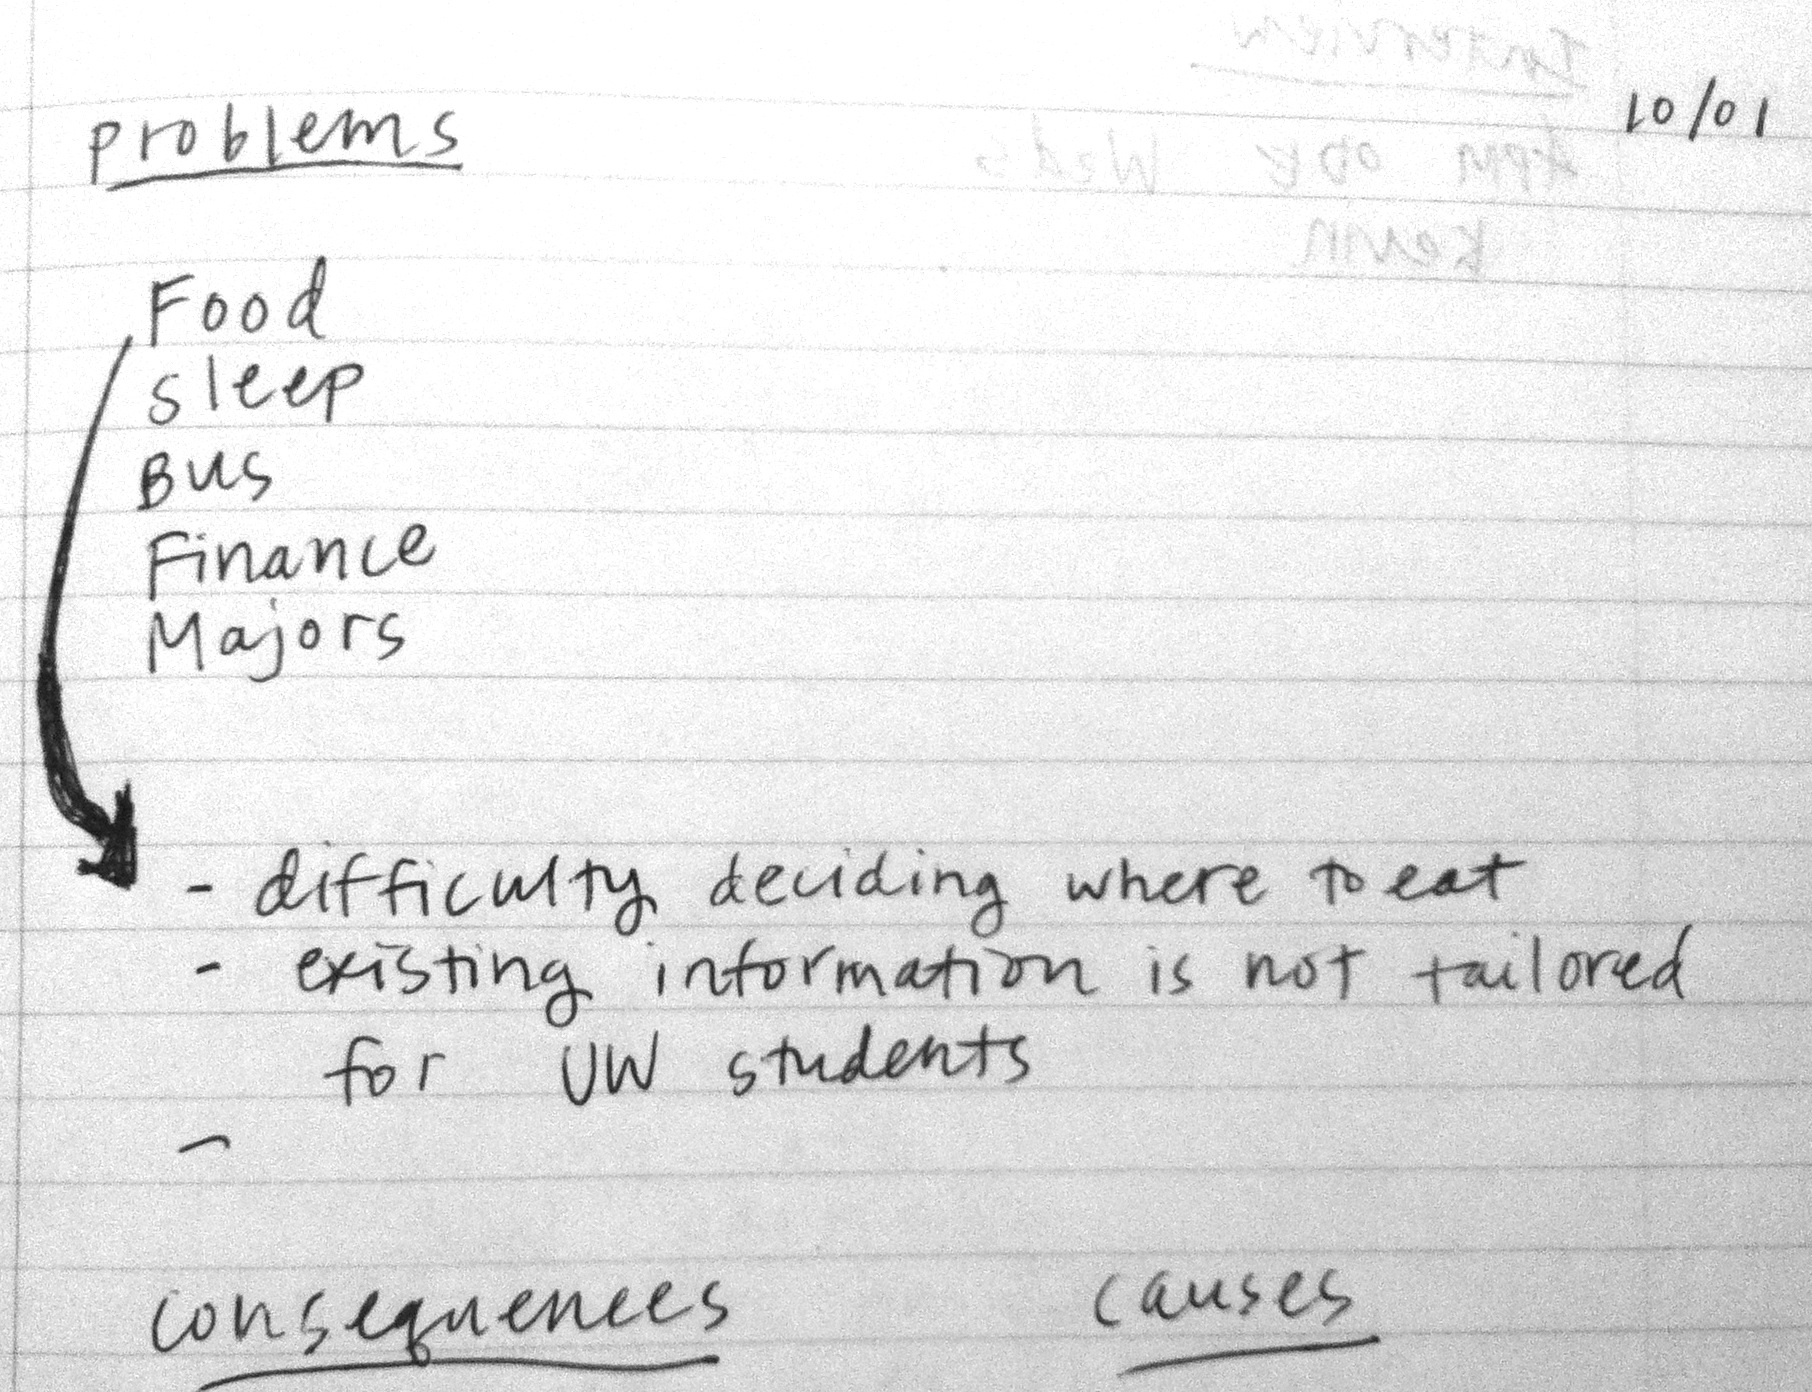 Interview
10/01
problems
4pm ODE Weds
Kevin
Food
sleep
Bus
Finance
Majors
- difficulty deciding where to eat
- existing information is not tailored
for UW students
-
consequences causes